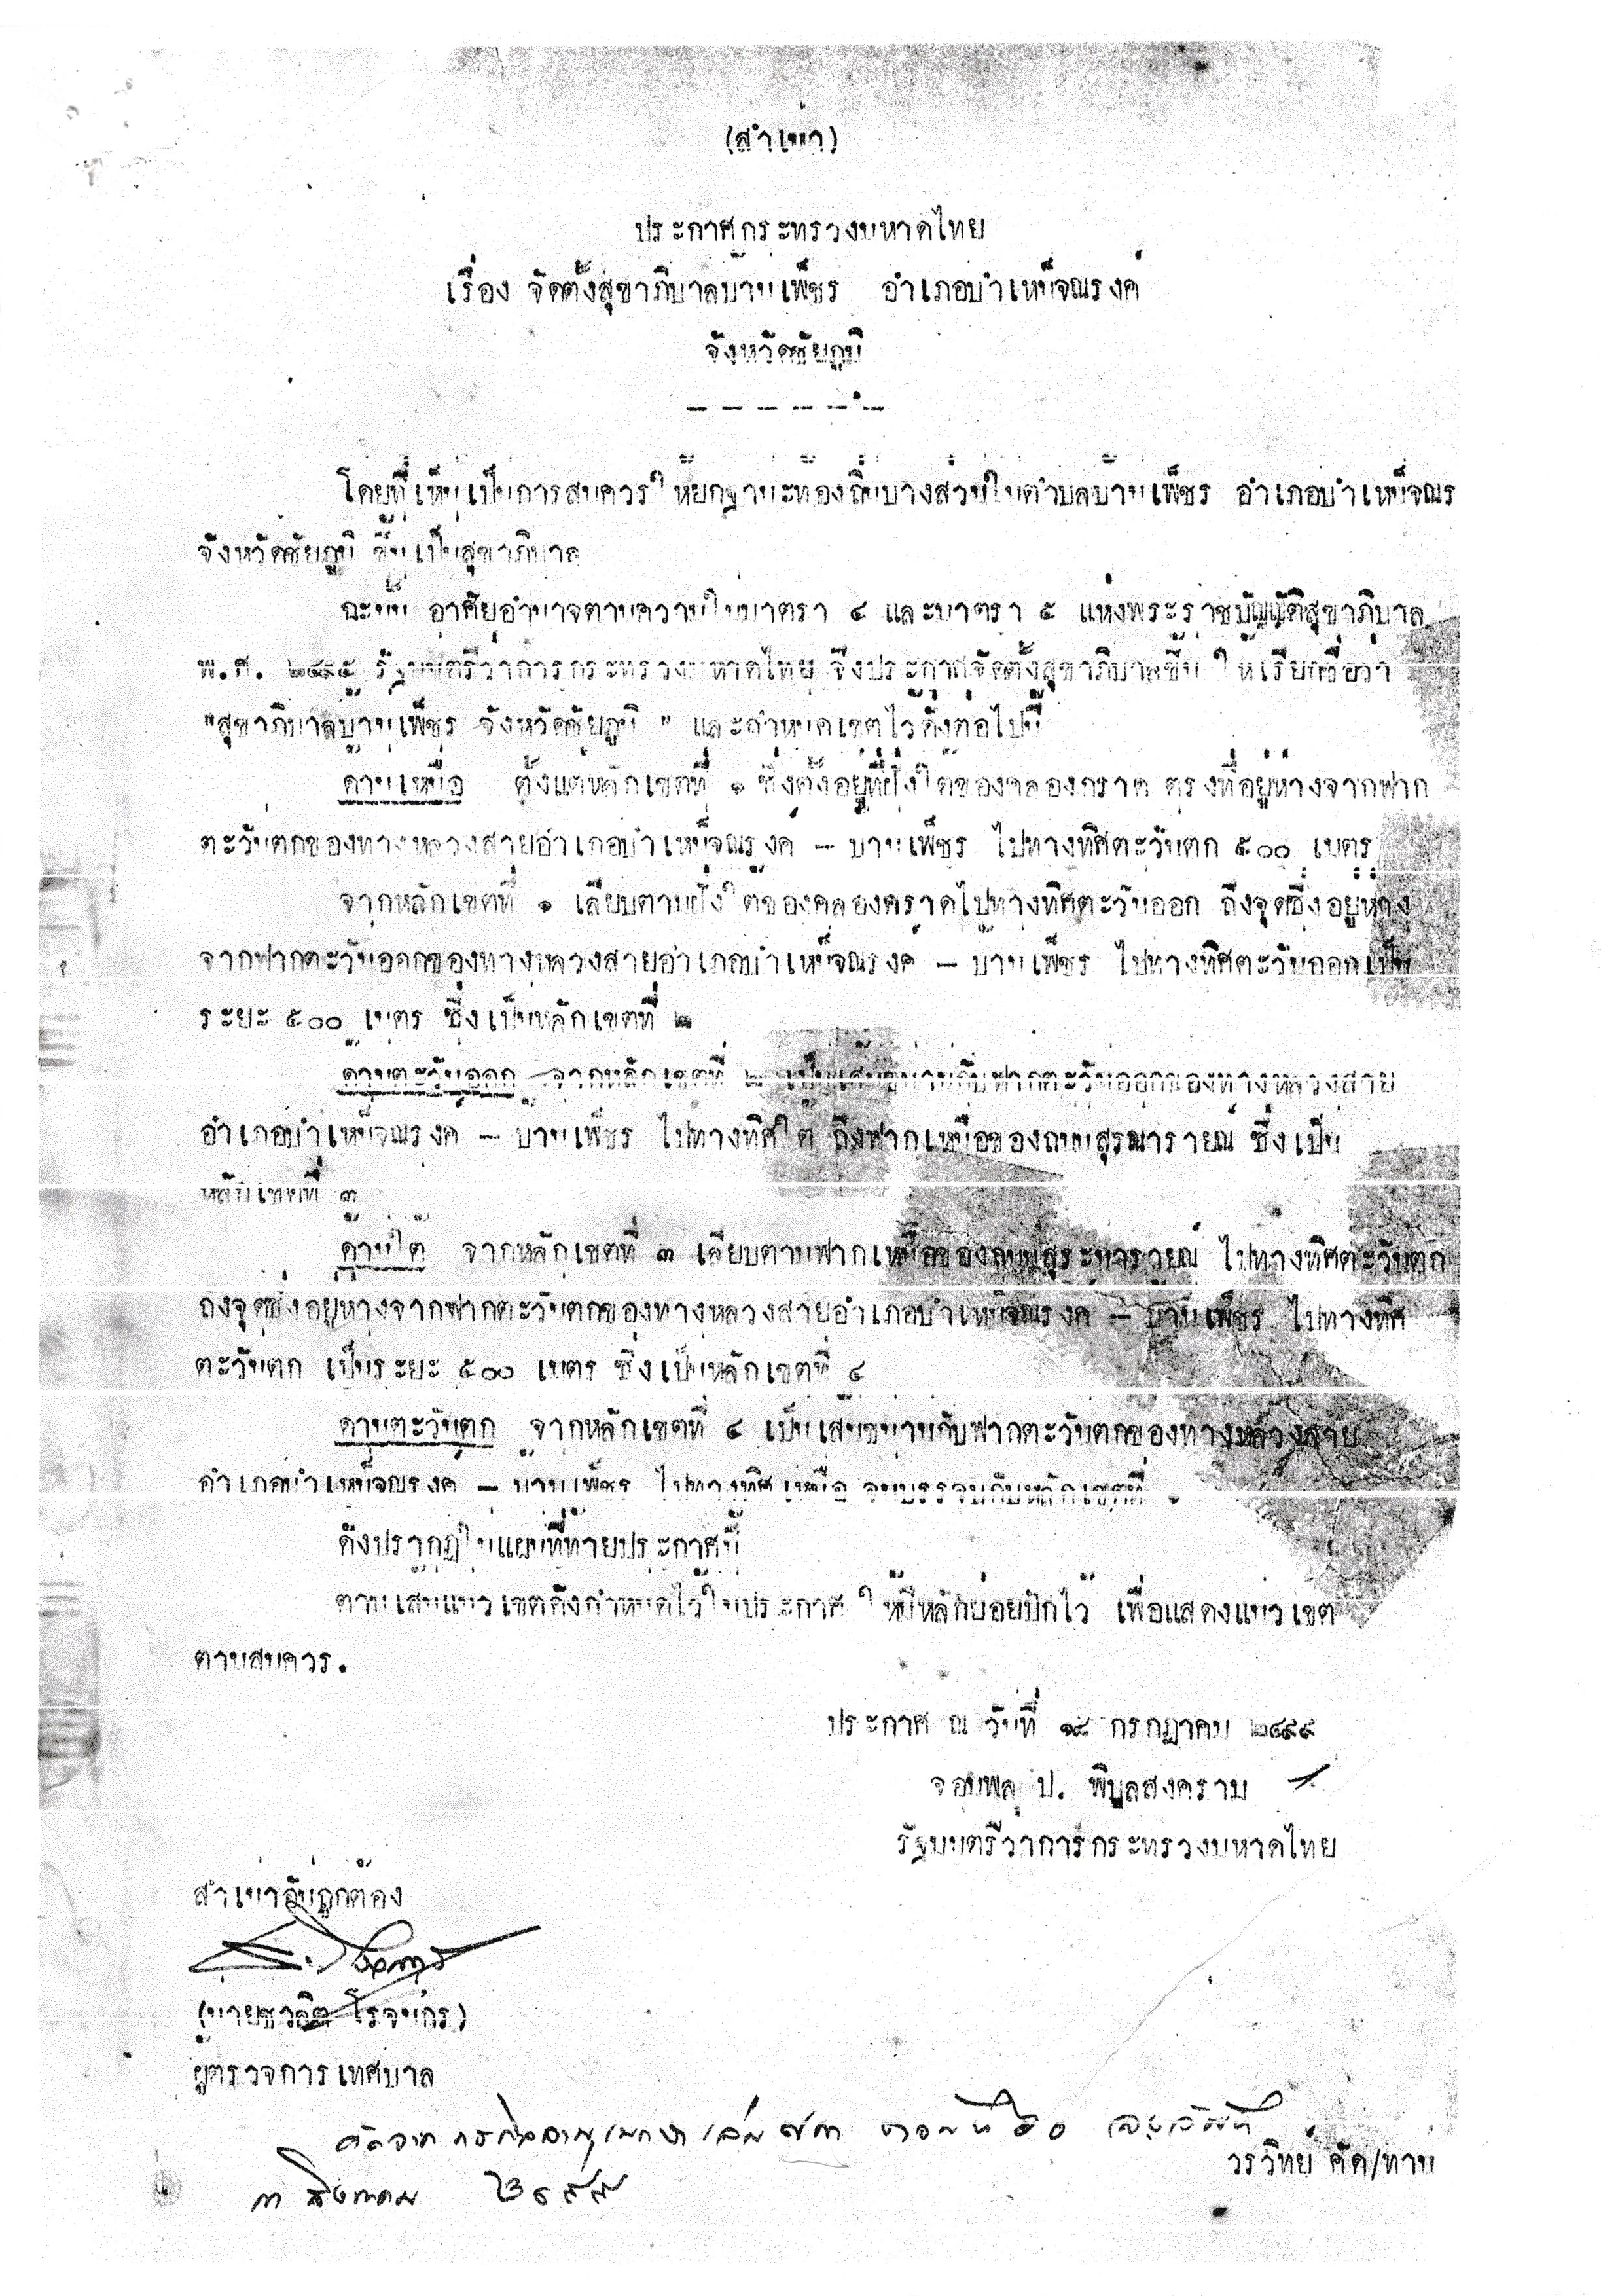 (สำเนา)
ประกาศกระทรวงมหาดไทย
เรื่อง จัดตั้งสุขาภิบาลบ้านเพ็ชร อำเภอบำเหน็จณรงค์
จังหวัดชัยภูมิ
โดยที่เห็นเป็นการสมควรให้ยกฐานะท้องถิ่นบางส่วนในตำบลบ้านเพ็ชร อำเภอบำเหน็จณร
จังหวัดชัยภูมิ ขึ้นเป็นสุขาภิบาล
ฉะนั้น อาศัยอำนาจตามความในมาตรา ๔ และมาตรา ๕ แห่งพระราชบัญญัติสุขาภิบาล
พ.ศ. ๒๔๙๕ รัฐมนตรีว่าการกระทรวงมหาดไทย จึงประกาศจัดตั้งสุขาภิบาลขึ้น ให้เรียกชื่อว่า
"สุขาภิบาลบ้านเพ็ชร จังหวัดชัยภูมิ " และกำหนดเขตไว้ดังต่อไปนี้
ด้านเหนือ ตั้งแต่หลักเขตที่ ๑ ซึ่งตั้งอยู่ที่ฝั่งใต้ของคลองคราด ตรงที่อยู่ห่างจากฟาก
ตะวันตกของทางหลวงสายอำเภอบำเหน็จณรงค์ – บ้านเพ็ชร ไปทางทิศตะวันตก ๕๐๐ เมตร
จากหลักเขตที่ ๑ เลียบตามฝั่งใต้ของคลองคราดไปทางทิศตะวันออก ถึงจุดซึ่งอยู่ห่าง
จากฟากตะวันออกของทางหลวงสายอำเภอบำเหน็จณรงค์ – บ้านเพ็ชร ไปทางทิศตะวันออกเป็น
ระยะ ๕๐๐ เมตร ซึ่งเป็นหลักเขตที่ ๒
ด้านตะวันออก จากหลักเขตที่ ๒ เป็นเส้นขนานกับฟากตะวันออกของทางหลวงสาย
อำเภอบำเหน็จณรงค์ – บ้านเพ็ชร ไปทางทิศใต้ ถึงฟากเหนือของถนนสุรนารายณ์ ซึ่งเป็น
หลักเขตที่ ๓
ด้านใต้ จากหลักเขตที่ ๓ เลียบตามฟากเหนือของถนนสุระนารายณ์ ไปทางทิศตะวันตก
ถึงจุดซึ่งอยู่ห่างจากฟากตะวันตกของทางหลวงสายอำเภอบำเหน็จณรงค์ – บ้านเพ็ชร ไปทางทิศ
ตะวันตก เป็นระยะ ๕๐๐ เมตร ซึ่งเป็นหลักเขตที่ ๔
ด้านตะวันตก จากหลักเขตที่ ๔ เป็นเส้นขนานกับฟากตะวันตกของทางหลวงสาย
อำเภอบำเหน็จณรงค์ – บ้านเพ็ชร ไปทางทิศเหนือ จนบรรจบกับหลักเขตที่
ดังปรากฏในแผนที่ท้ายประกาศนี้
ตามเส้นแนวเขตดังกำหนดไว้ในประกาศ ให้มีหลักย่อยปักไว้ เพื่อแสดงแนวเขต
ตามสมควร.
ประกาศ ณ วันที่ ๑๘ กรกฎาคม ๒๔๙๙
จอมพล ป. พิบูลสงคราม
รัฐมนตรีว่าการกระทรวงมหาดไทย
สำเนาอันถูกต้อง
(นายชวลิต โรจนกร)
ผู้ตรวจการเทศบาล
คัดจาก เล่ม ๗๓ ตอนที่ ๖๐
วรวิทย์ คัด/ทาน
๓ สิงหาคม ๒๔๙๙